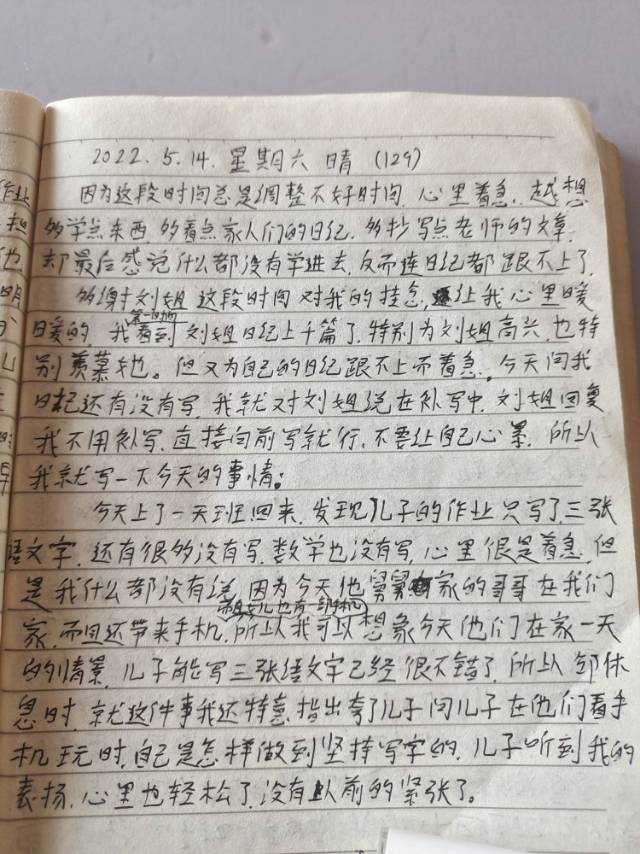 2022.5.14.星期六 晴 (129)
因为这段时间总是调整不好时间,心里着急,越想
多学点东西,多看点家人们的日记,多抄写点老师的文章,
却最后感觉什么都没有学进去,反而连日记都跟不上了,
多谢刘姐这段时间对我的挂念,让我心里暖
暖的,我第一时间看到刘姐日记上千篇了,特别为刘姐高兴,也特
别羡慕她。但又为自己的日记跟不上而着急,今天问我
日记还有没有写,我就对刘姐说在补写中,刘姐回复
我不用补写,直接向前写就行,不要让自己心累,所以
我就写一下今天的事情:
今天上了一天班回来,发现儿子的作业只写了三张
语文字,还有很多没有写,数学也没有写,心里很是着急,但
是我什么都没有说,因为今天他舅舅家的哥哥在我们
家,而且还带来手机,所以我可以想象今天他们在家一天
的情景,儿子能写三张语文字已经很不错了,所以
息时,就这件事我还特意指出夸了儿子问儿子在他们看手
机玩时,自己是怎样做到坚持写字的,儿子听到我的
表扬,心里也轻松了,没有以前的紧张了。
作业
想
他
明
儿